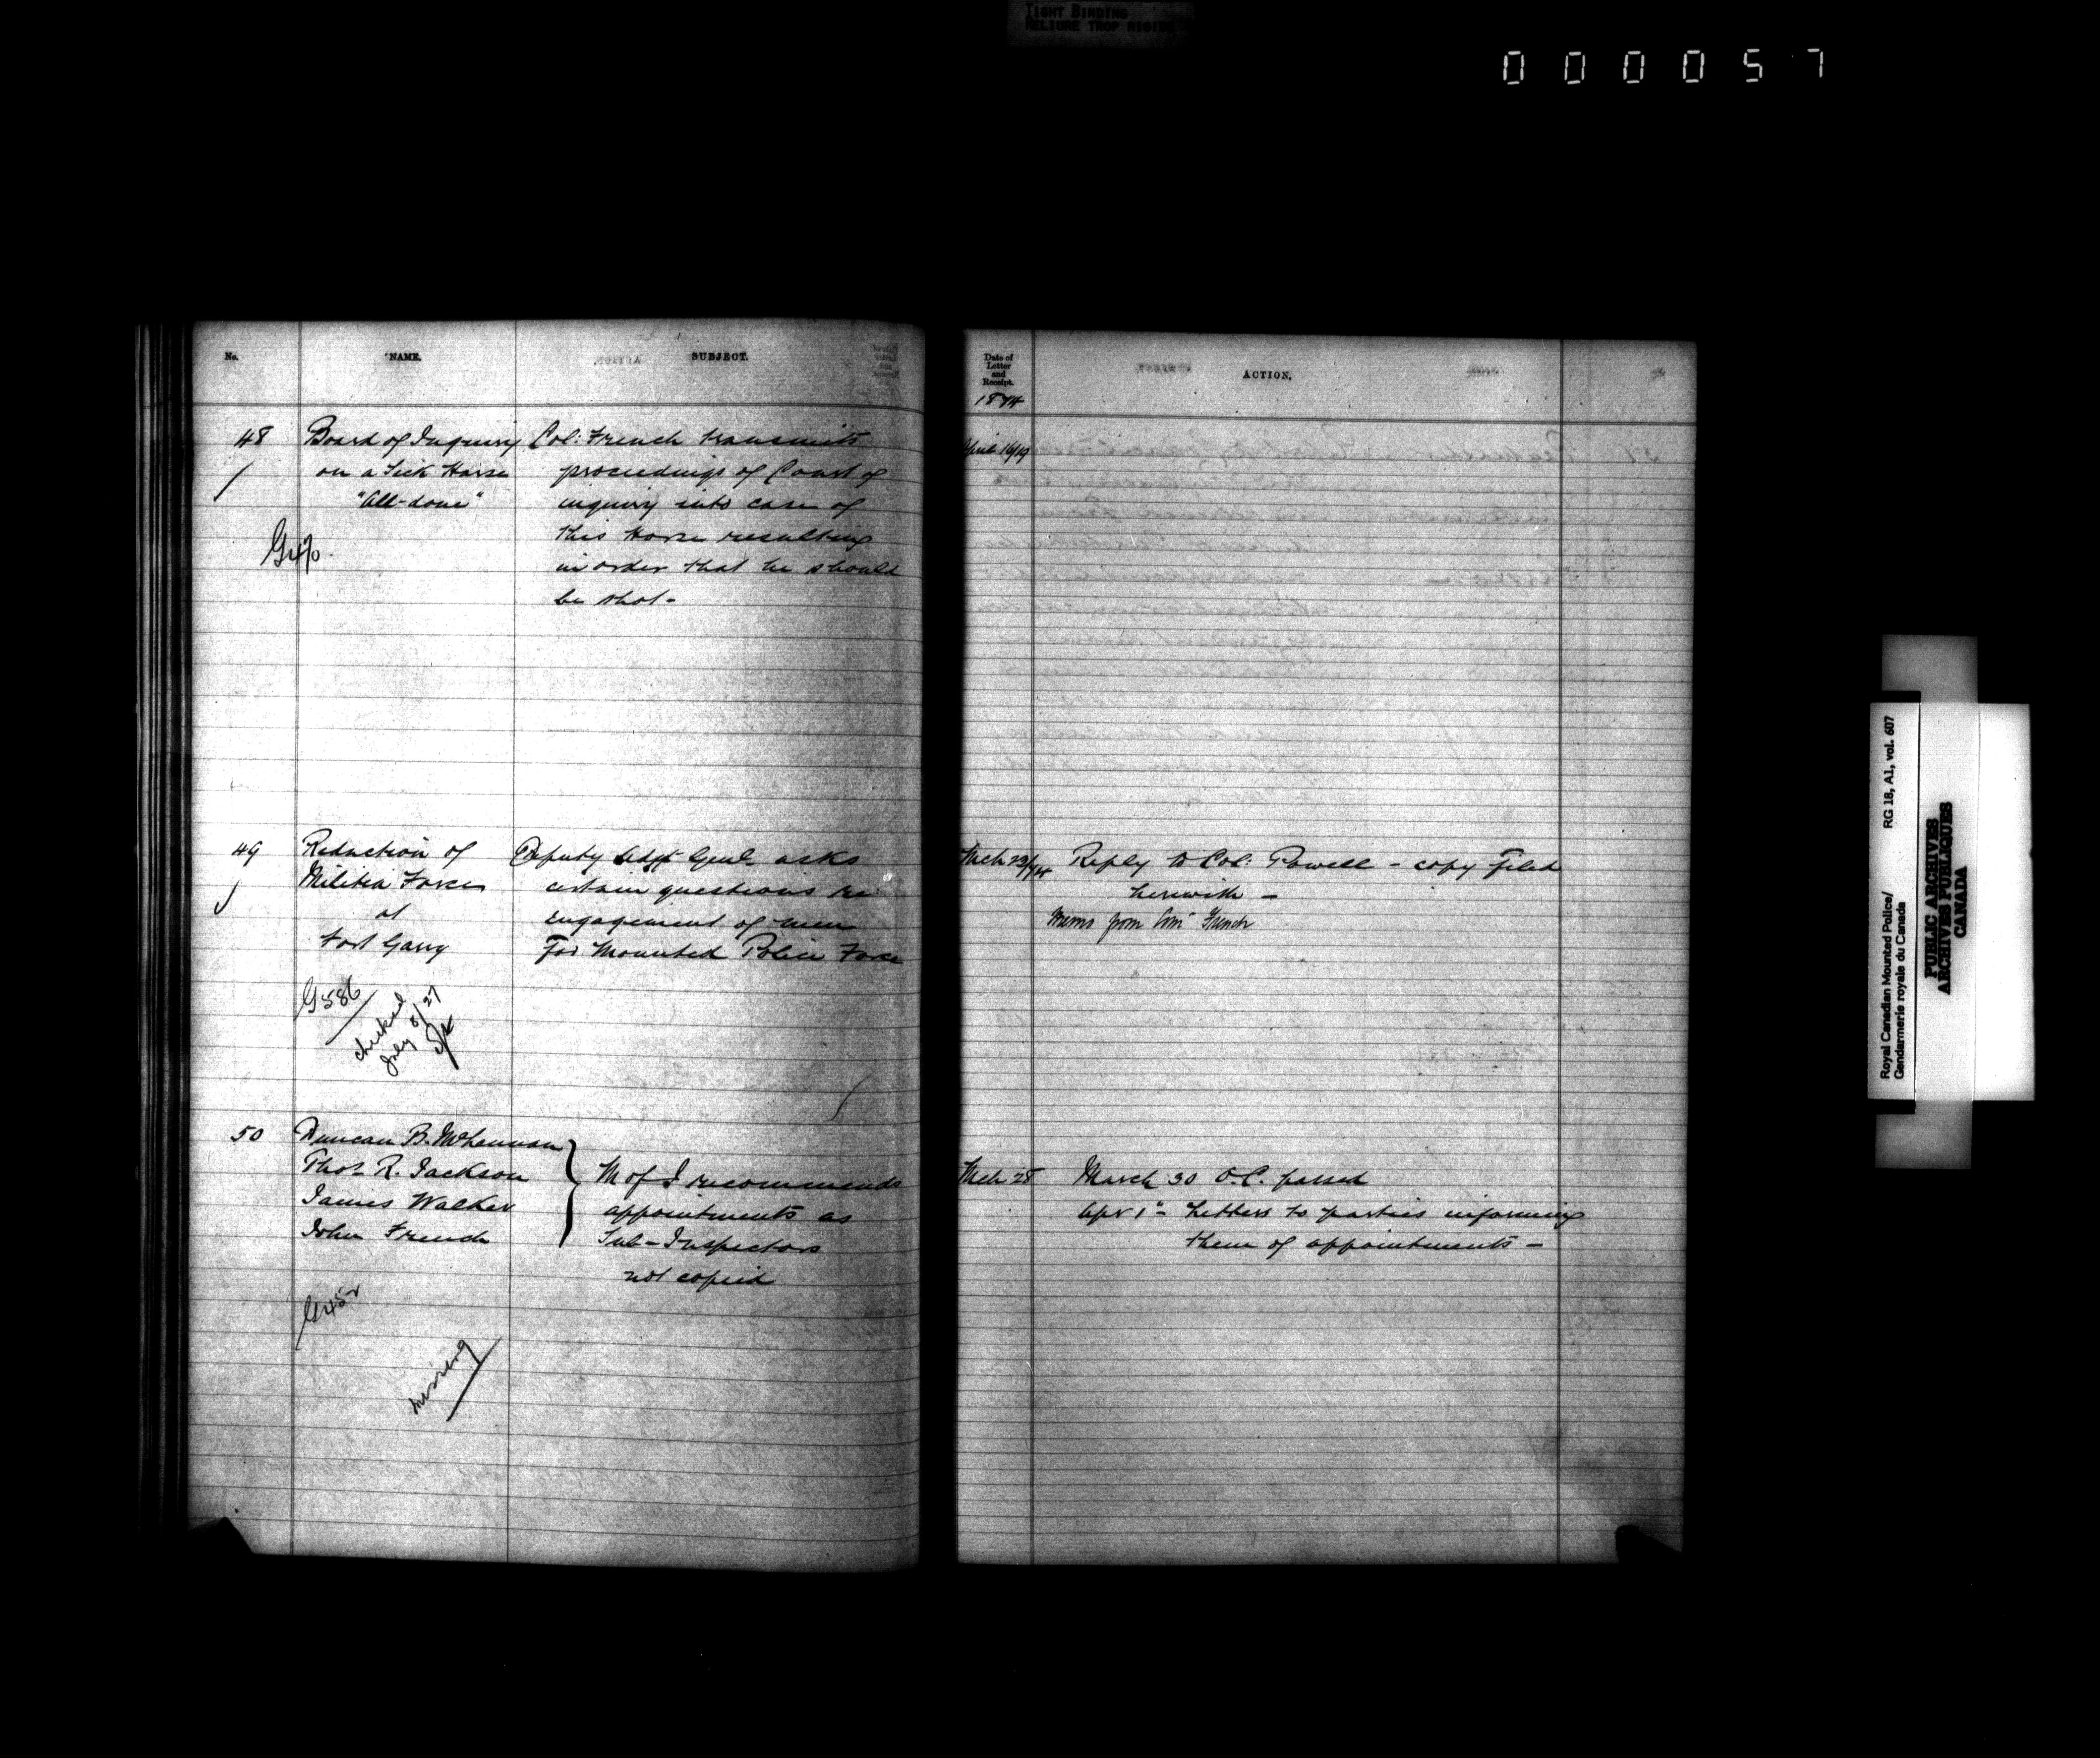 TIGHT BINDING
RELIURE TROP RIGIDE
000057
No. NAME. SUBJECT.
48 Board of Inquiry Col: French transmits
on a Sick Horse proceedings of Court of
"All-done" inquiry into case of
this Horse resulting
in order that he should
be shot-
G470
49 Reduction of Deputy Adjt Genl asks
Militia Force certain questions re:
at engagement of men
Fort Garry For Mounted Police Force
G586
checked
July 8/27
50 Duncan B. McLennan
Thos R. Jackson M of I recommends
James Walker appointments as
John French Sub-Inspectors
not copied
G452
missing
Date of
Letter
and
Receipt.
ACTION.
1874
April 16/74
Mch 23/74 Reply to Col: Powell - copy filed
herewith -
Memo from Com French
Mch 28 March 30 O.C. passed
Apr 1st Letters to parties informing
them of appointments -
Royal Canadian Mounted Police/ RG 18, A1, vol. 607
Gendarmerie royale du Canada
PUBLIC ARCHIVES
ARCHIVES PUBLIQUES
CANADA